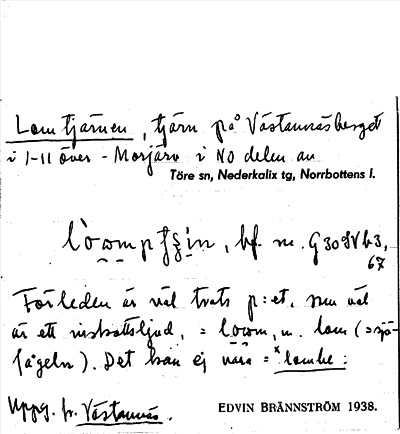 Lomtjärnen, tjärn på Västannäsberget
i 1-11 över-Morjärv i NO delen av
Töre sn, Nederkalix tg, Norrbottens l.
bf. m. G 3095 V b 3,
67
Förleden är väl trots p:et, som väl
är ett inskottsljud, = loom, m. lom (= sjö-
fågeln). Det kan ej vara = *lambe:
Uppg. fr. Västannäs.
EDVIN BRÄNNSTRÖM 1938.